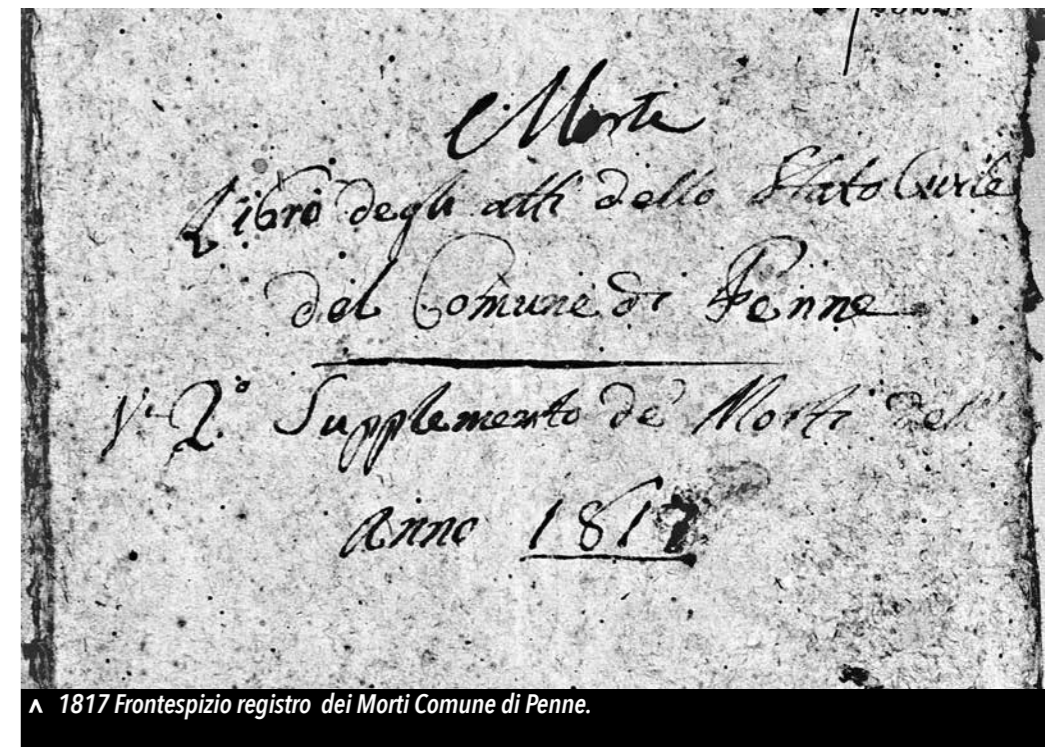 Morti
Libro degli atti dello Stato Civile
del Comune di Penne
N. 2.° Supplemento de' Morti dell'
anno 1817
^ 1817 Frontespizio registro dei Morti Comune di Penne.